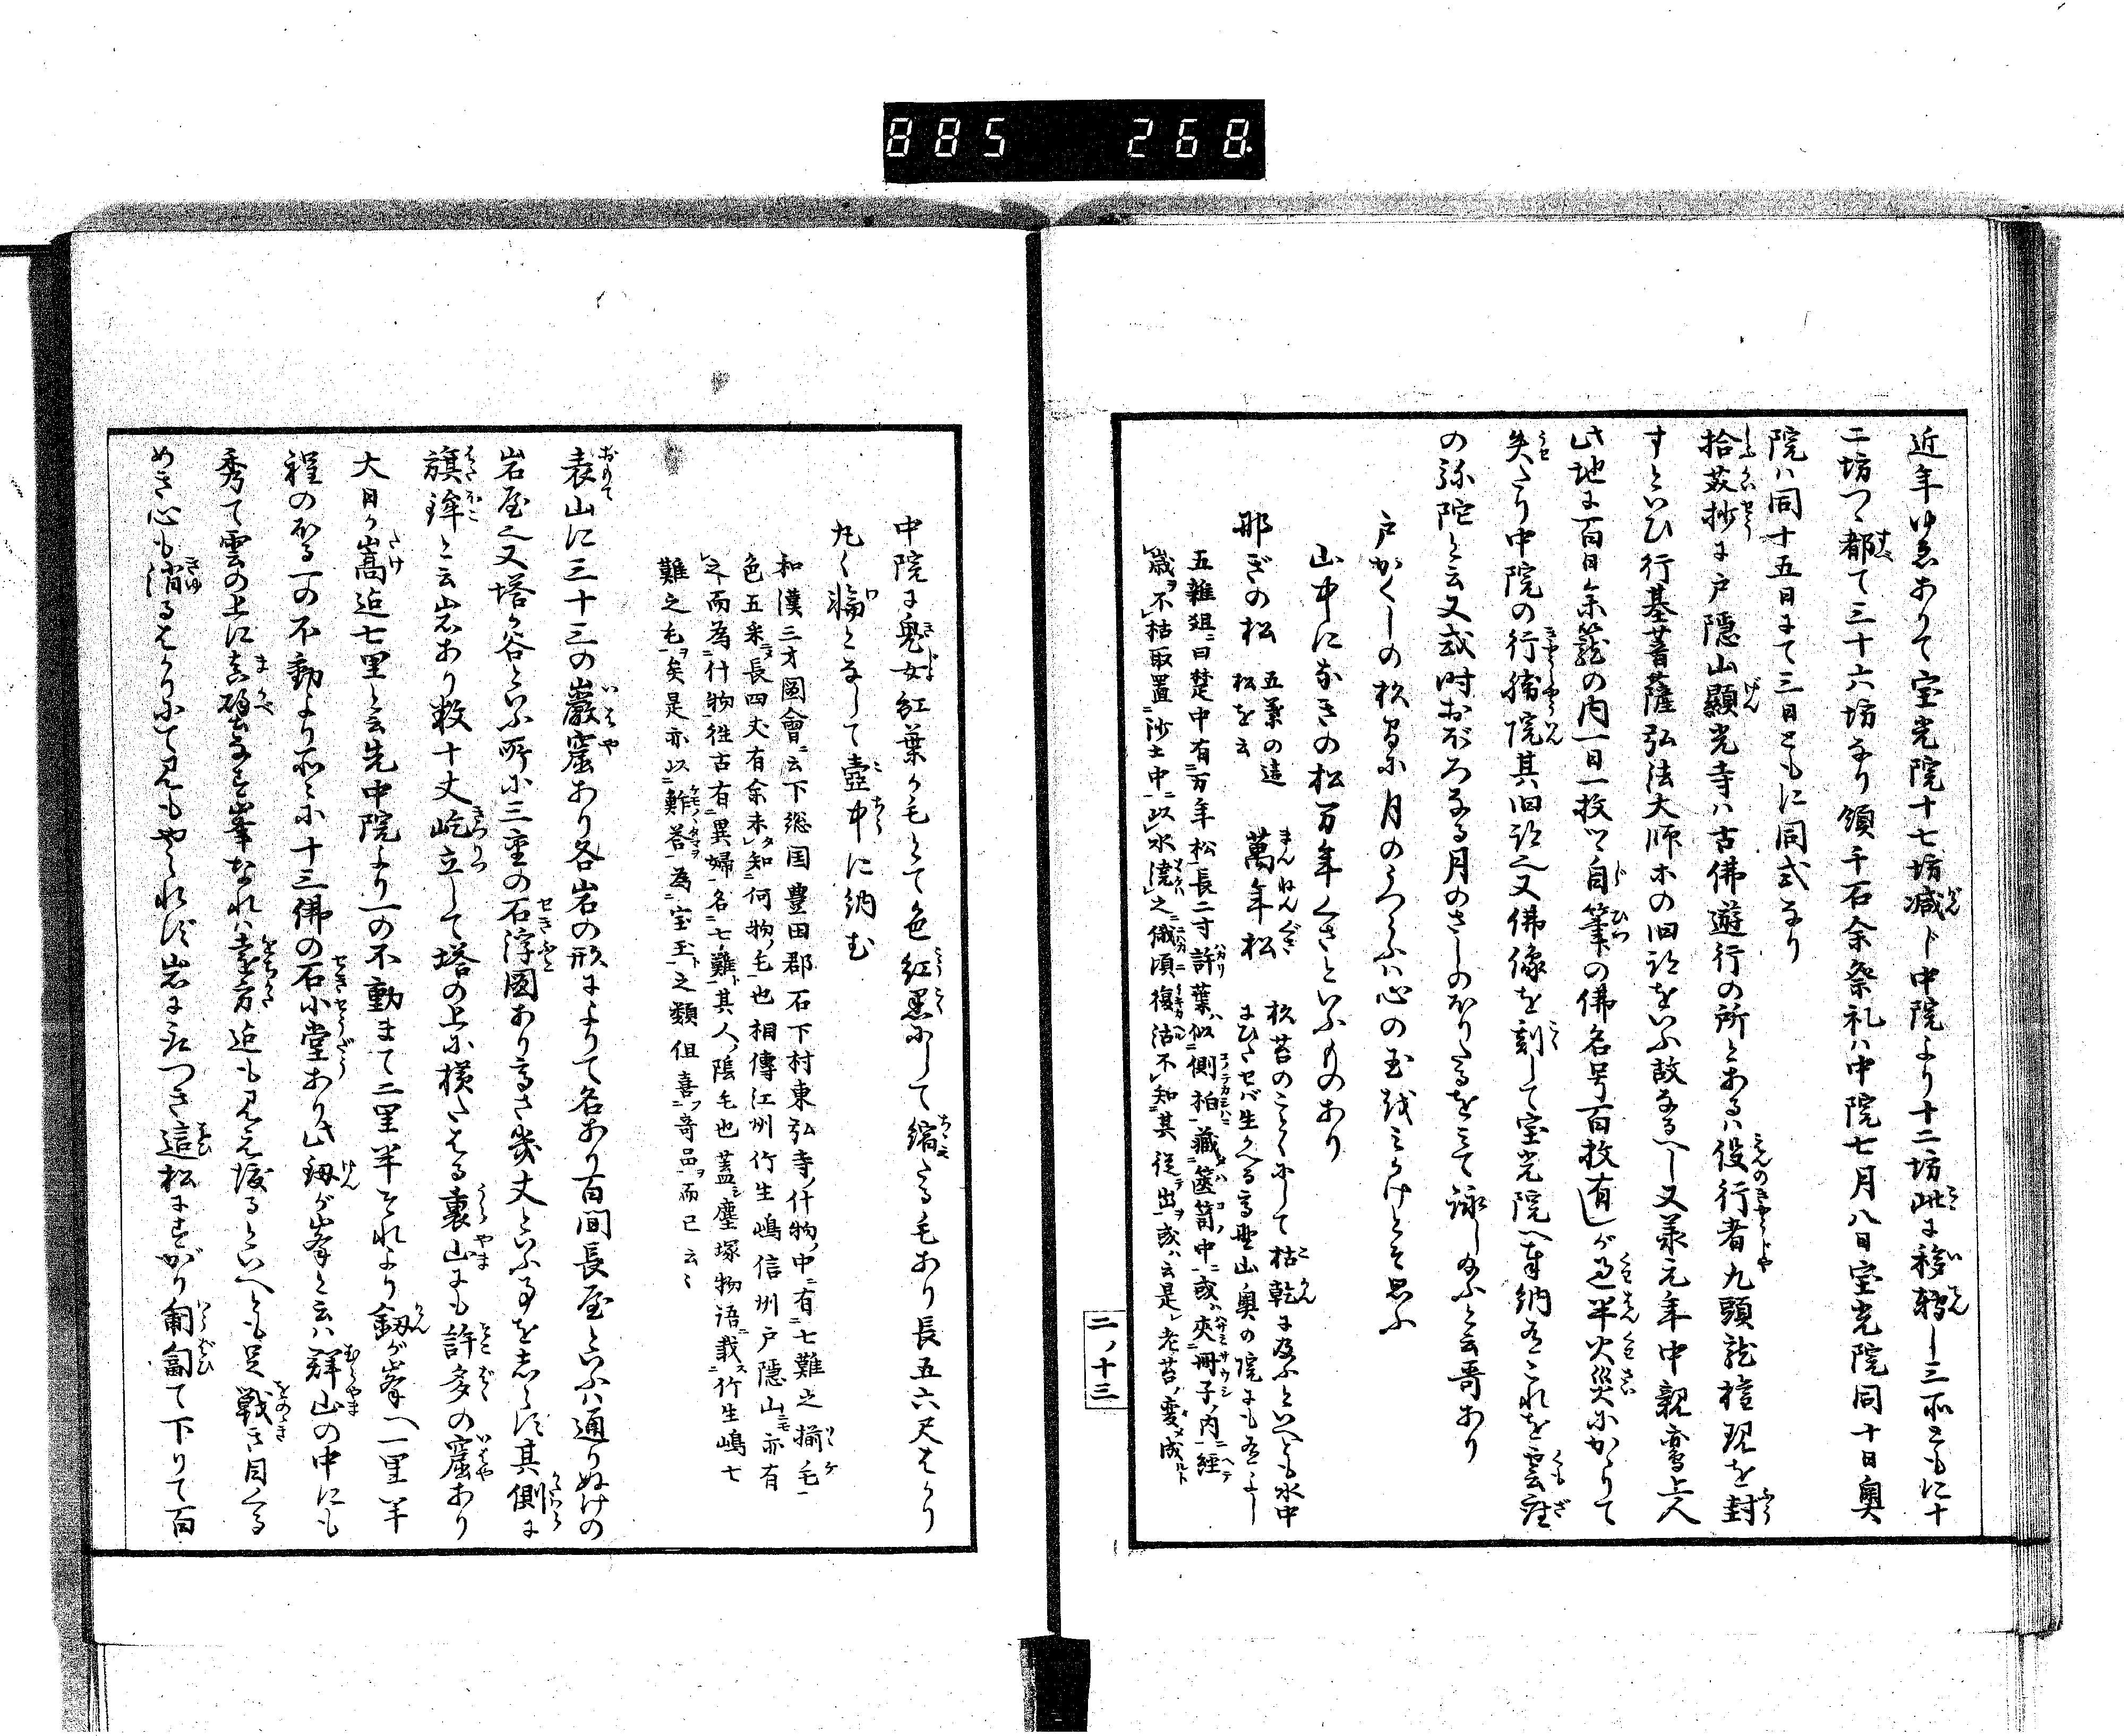 885 268
近年ゆゑありて宝光院十七坊減じ中院より十二坊此に移轉し三所ともに十
二坊つゝ都て三十六坊なり領千石余祭礼ハ中院七月八日宝光院同十日奥
院ハ同十五日にて三日ともに同式なり
拾芥抄に戸隠山顯光寺ハ古佛遊行の所とあるハ役行者九頭龍権現を封
すといひ行基菩薩弘法大師木の旧跡をいふ故なるへし又承元年中親鸞上人
此地に百日参籠の内一日一枚ツゝ自筆の佛名号百枚有しが過半火災にかゝりて
失たり中院の行勝院其旧跡也又佛像を刻して宝光院へ奉納有これを雲座
の弥陀と云又或時おぼろなる月のさしのぼりたるをみて詠し給ふと云哥あり
戸がくしの杉間に月のうつろふハ心の玉をみかけとそ思ふ
山中になきの松万年くさといふものあり
那ぎの松 五葉の這松を云 萬年松 杉苔のことくにして枯乾に及ふといへとも水中
にひたせバ生かへる高野山奥の院にも有よし
五雜爼ニ曰楚中有万年松長二寸許葉ハ似側柏藏篋笥中ニ或ハ夾冊子ノ内ニ經
歳ヲ不枯取置沙土中ニ以水澆之俄頃復活不知其從出ヲ或ハ云是レ老苔ノ変成ルト
二ノ十三
中院に鬼女紅葉か毛とて色紅黒にして縮たる毛あり長五六尺はかり
丸く輪となして壺中に納む
和漢三才圖會ニ云下総国豊田郡石下村東弘寺什物ノ中ニ有七難之揃毛
色五采長四丈有余未タ知何物ノ毛也相傳江州竹生嶋信州戸隠山ニモ亦有
之而為什物往古有異婦名七難ト其人ノ陰毛也蓋シ塵塚物語ニ載ス竹生嶋七
難之毛ヲ矣是亦以鮓荅ヲ為宝玉ト之類但喜フ奇品ヲ而已云々
表山に三十三の巖窟あり各岩の形によりて名あり百間長屋といふハ通りぬけの
岩屋也又塔か谷といふ所に三重の石浮圖あり高さ幾丈といふ事をしらず其側に
旗鉾と云岩あり数十丈屹立して塔の上に横たはる裏山にも許多の窟あり
大日か嵩迠七里と云先中院より一の不動まて二里半それより釼が峯へ一里半
程の所る一の不動より所々に十三佛の石小堂あり此釼が峯と云ハ群山の中にも
秀て雲の上に なる峯なれハ遠方迠も見え渡るといへとも足戦き目くる
めき心も消るはかりにて見もやられず岩に取つき這松にすがり匍匐て下りて百